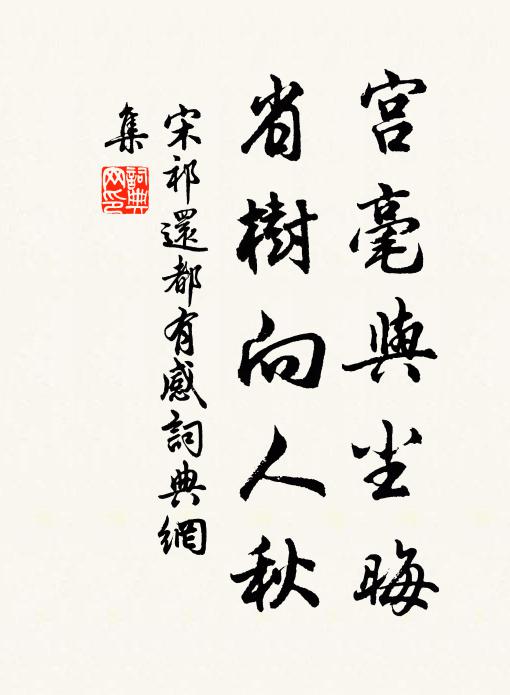 宫毫與尘晦
省樹向人秋
宋祁還都有感詞典網
集
詞典
网印